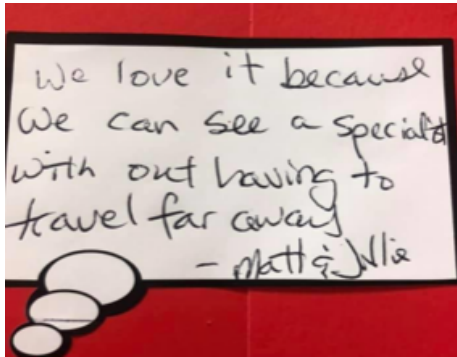 We love it because
We can see a specialist
with out having to
travel far away
- Matt & Julie